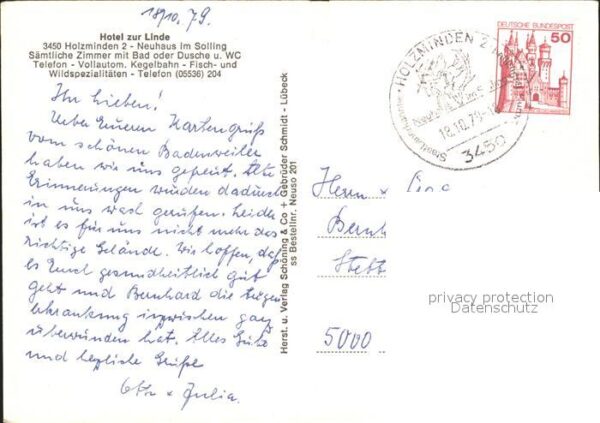 18/10. 79.
Hotel zur Linde
3450 Holzminden 2 - Neuhaus im Solling
Sämtliche Zimmer mit Bad oder Dusche u. WC
Telefon - Vollautom. Kegelbahn - Fisch- und
Wildspezialitäten - Telefon (05536) 204
Ihr Lieben!
Ueber Eueren Kartengruß
vom schönen Badenweiler
haben wir uns gefreut. Alte
Erinnerungen wurden dadurch
in uns wach gerufen. Leider
ist es für uns nicht mehr das
richtige Gelände. Wir hoffen, daß
es Euch gesundheitlich gut
geht und Bernhard die
erkrankung inzwischen ganz
überwunden hat. Alles Gute
und herzliche Grüße
Otto + Julia.
Herst. u. Verlag Schöning & Co + Gebrüder Schmidt - Lübeck
ss Bestellnr. Neuso 201
DEUTSCHE BUNDESPOST
50
HOLZMINDEN 2
18.10.79
3450
Herrn +
Bernh
Stett
5000
privacy protection
Datenschutz